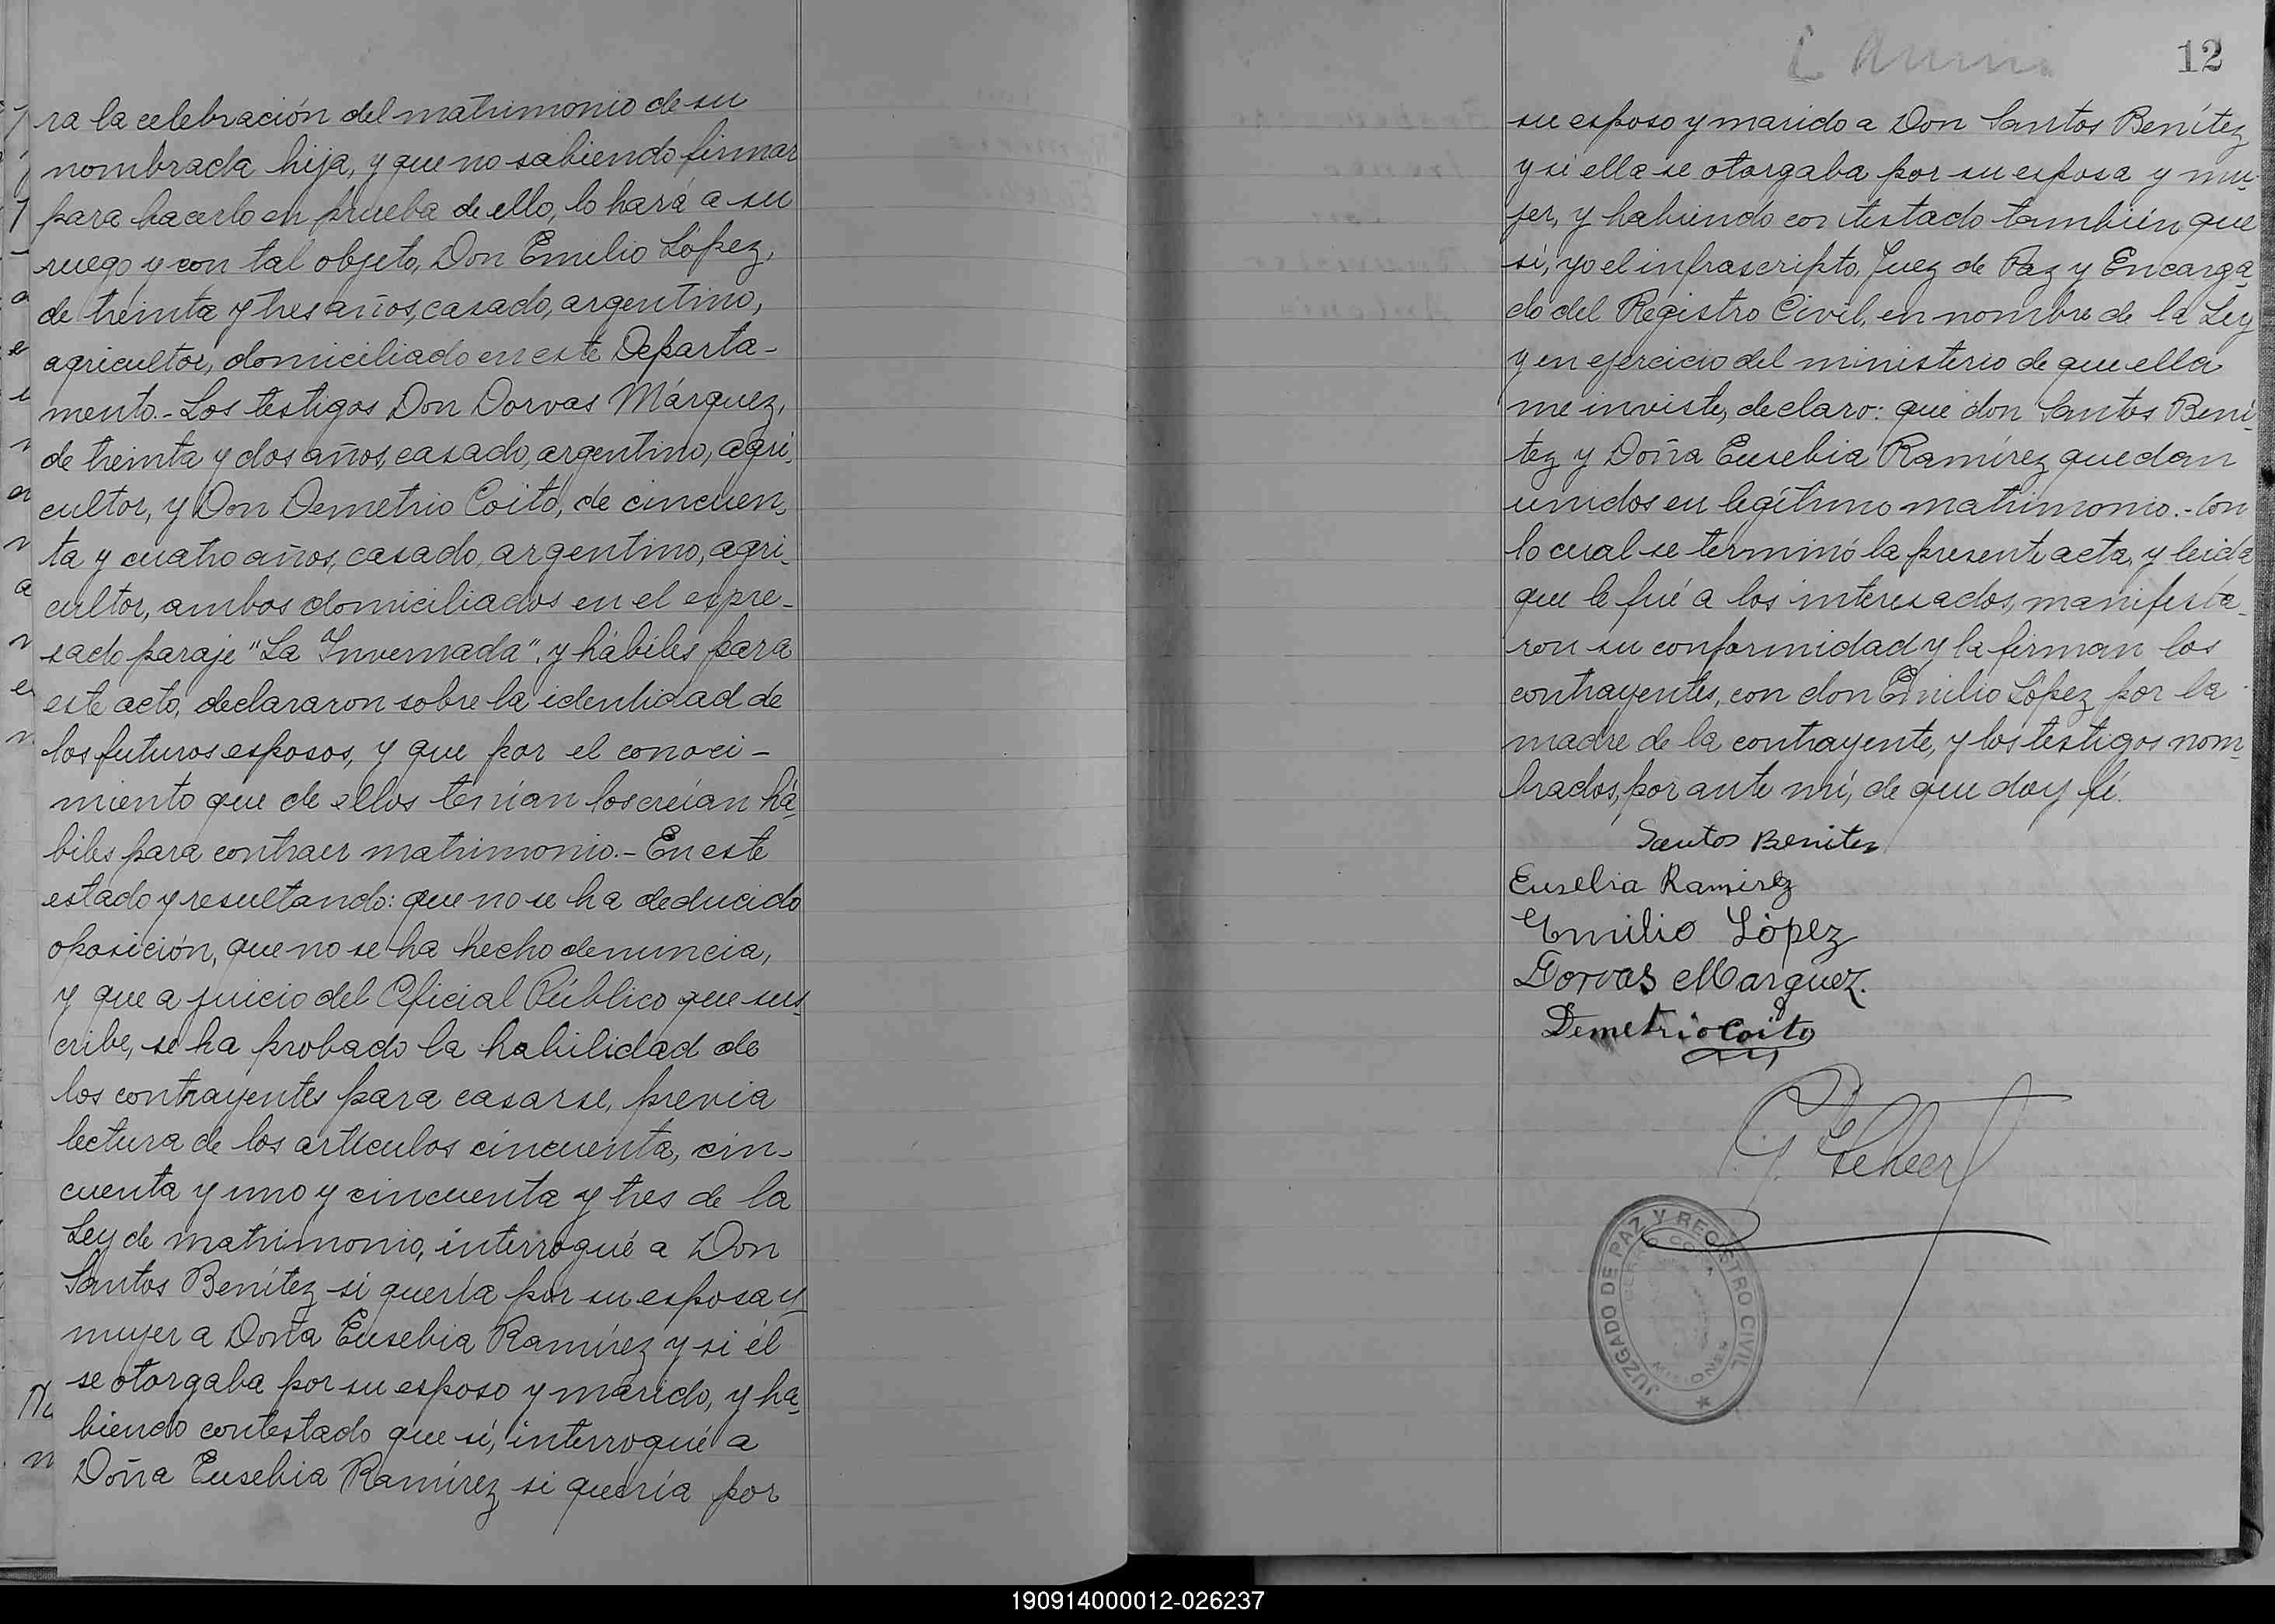 ra la celebración del matrimonio de su
nombrada hija, y que no sabiendo firmar
para hacerlo en prueba de ello, lo hará a su
ruego y con tal objeto, Don Emilio López,
de treinta y tres años, casado, argentino,
agricultor, domiciliado en este Departa-
mento.- Los testigos Don Dorvas Márquez,
de treinta y dos años, casado, argentino, agri-
cultor, y Don Demetrio Coito, de cincuen-
ta y cuatro años, casado, argentino, agri-
cultor, ambos domiciliados en el expre-
sado paraje "La Invernada", y hábiles para
este acto, declararon sobre la identidad de
los futuros esposos, y que por el conoci-
miento que de ellos tenían los creían há-
biles para contraer matrimonio.- En este
estado y resultando: que no se ha deducido
oposición, que no se ha hecho denuncia,
y que a juicio del Oficial Público que sus-
cribe, se ha probado la habilidad de
los contrayentes para casarse, previa
lectura de los artículos cincuenta, cin-
cuenta y uno y cincuenta y tres de la
Ley de matrimonio, interrogué a Don
Santos Benítez si quería por su esposa y
mujer a Doña Eusebia Ramírez y si él
se otorgaba por su esposo y marido, y ha-
biendo contestado que sí, interrogué a
Doña Eusebia Ramírez si quería por
12
su esposo y marido a Don Santos Benítez
y si ella se otorgaba por su esposa y mu-
jer, y habiendo contestado también que
sí, yo el infrascripto, Juez de Paz y Encarga-
do del Registro Civil, en nombre de la Ley
y en ejercicio del ministerio de que ella
me inviste, declaro: que don Santos Bení-
tez y Doña Eusebia Ramírez quedan
unidos en legítimo matrimonio.- Con
lo cual se terminó la presente acta, y leida
que le fué a los interesados, manifesta-
ron su conformidad y la firman los
contrayentes, con don Emilio López por la
madre de la contrayente, y los testigos nom-
brados, por ante mí, de que doy fé.
Santos Benitez
Eusebia Ramirez
Emilio López
Dorvas Marquez.
Demetrio Coito
JUZGADO DE PAZ Y REGISTRO CIVIL
MISIONES
190914000012-026237